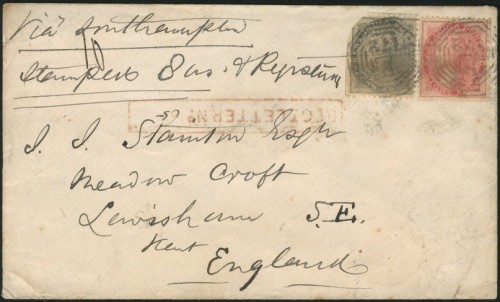 Via Southampton
10
Stamped 8 as. & Registerd
REGD. LETTER No
59
J. J. Stainton Esqr
Meadow Croft
Lewisham S.E.
Kent
England